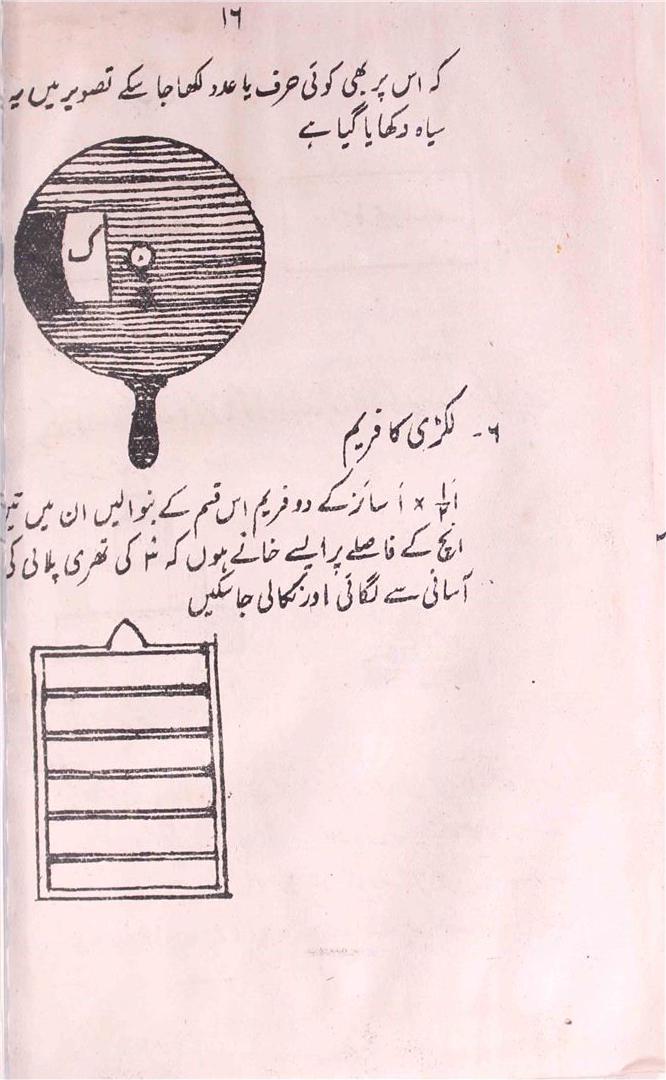 ۱۶
کہ اس پر بھی کوئی حرف یا عدد لکھا جا سکے تصویر میں یہ
سیاہ دکھایا گیا ہے
ک
۵
۶۔ لکڑی کا فریم
اَ۱/۲ × اَ سائز کے دو فریم اس قسم کے بنوا لیں ان میں تین
انچ کے فاصلے پر ایسے خانے ہوں کہ ۳ کی تھری پلائی کی
آسانی سے لگائی اور نکالی جا سکیں